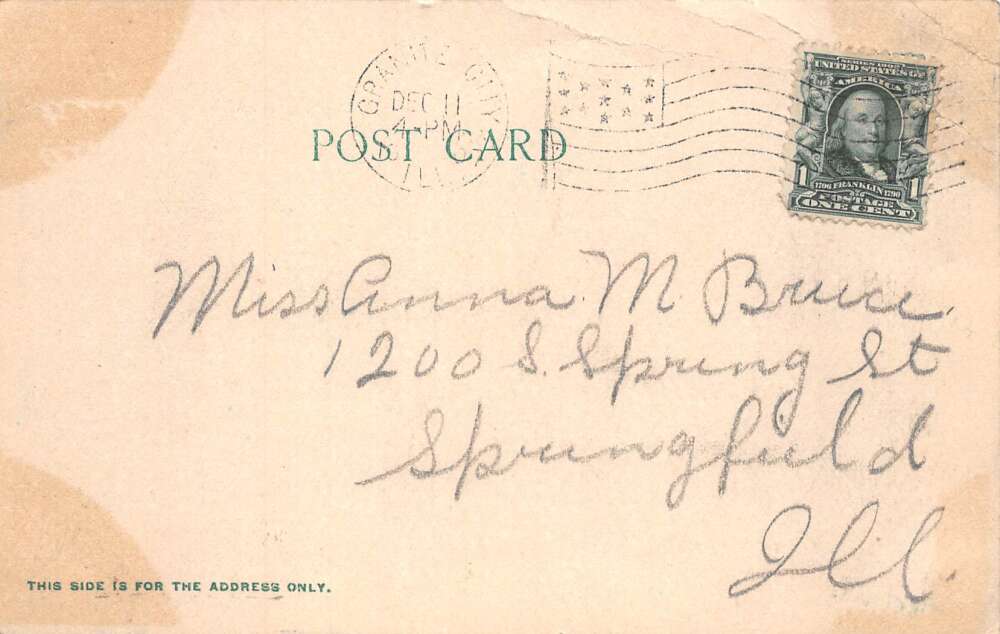 GRANITE CITY
DEC 11
4-PM
ILL.
SERIES 1902
UNITED STATES OF
AMERICA
1706 FRANKLIN 1790
1 1
POSTAGE
ONE CENT
POST CARD
Miss Anna M Bruce
1200 S. Spring St
Springfield
Ill.
THIS SIDE IS FOR THE ADDRESS ONLY.